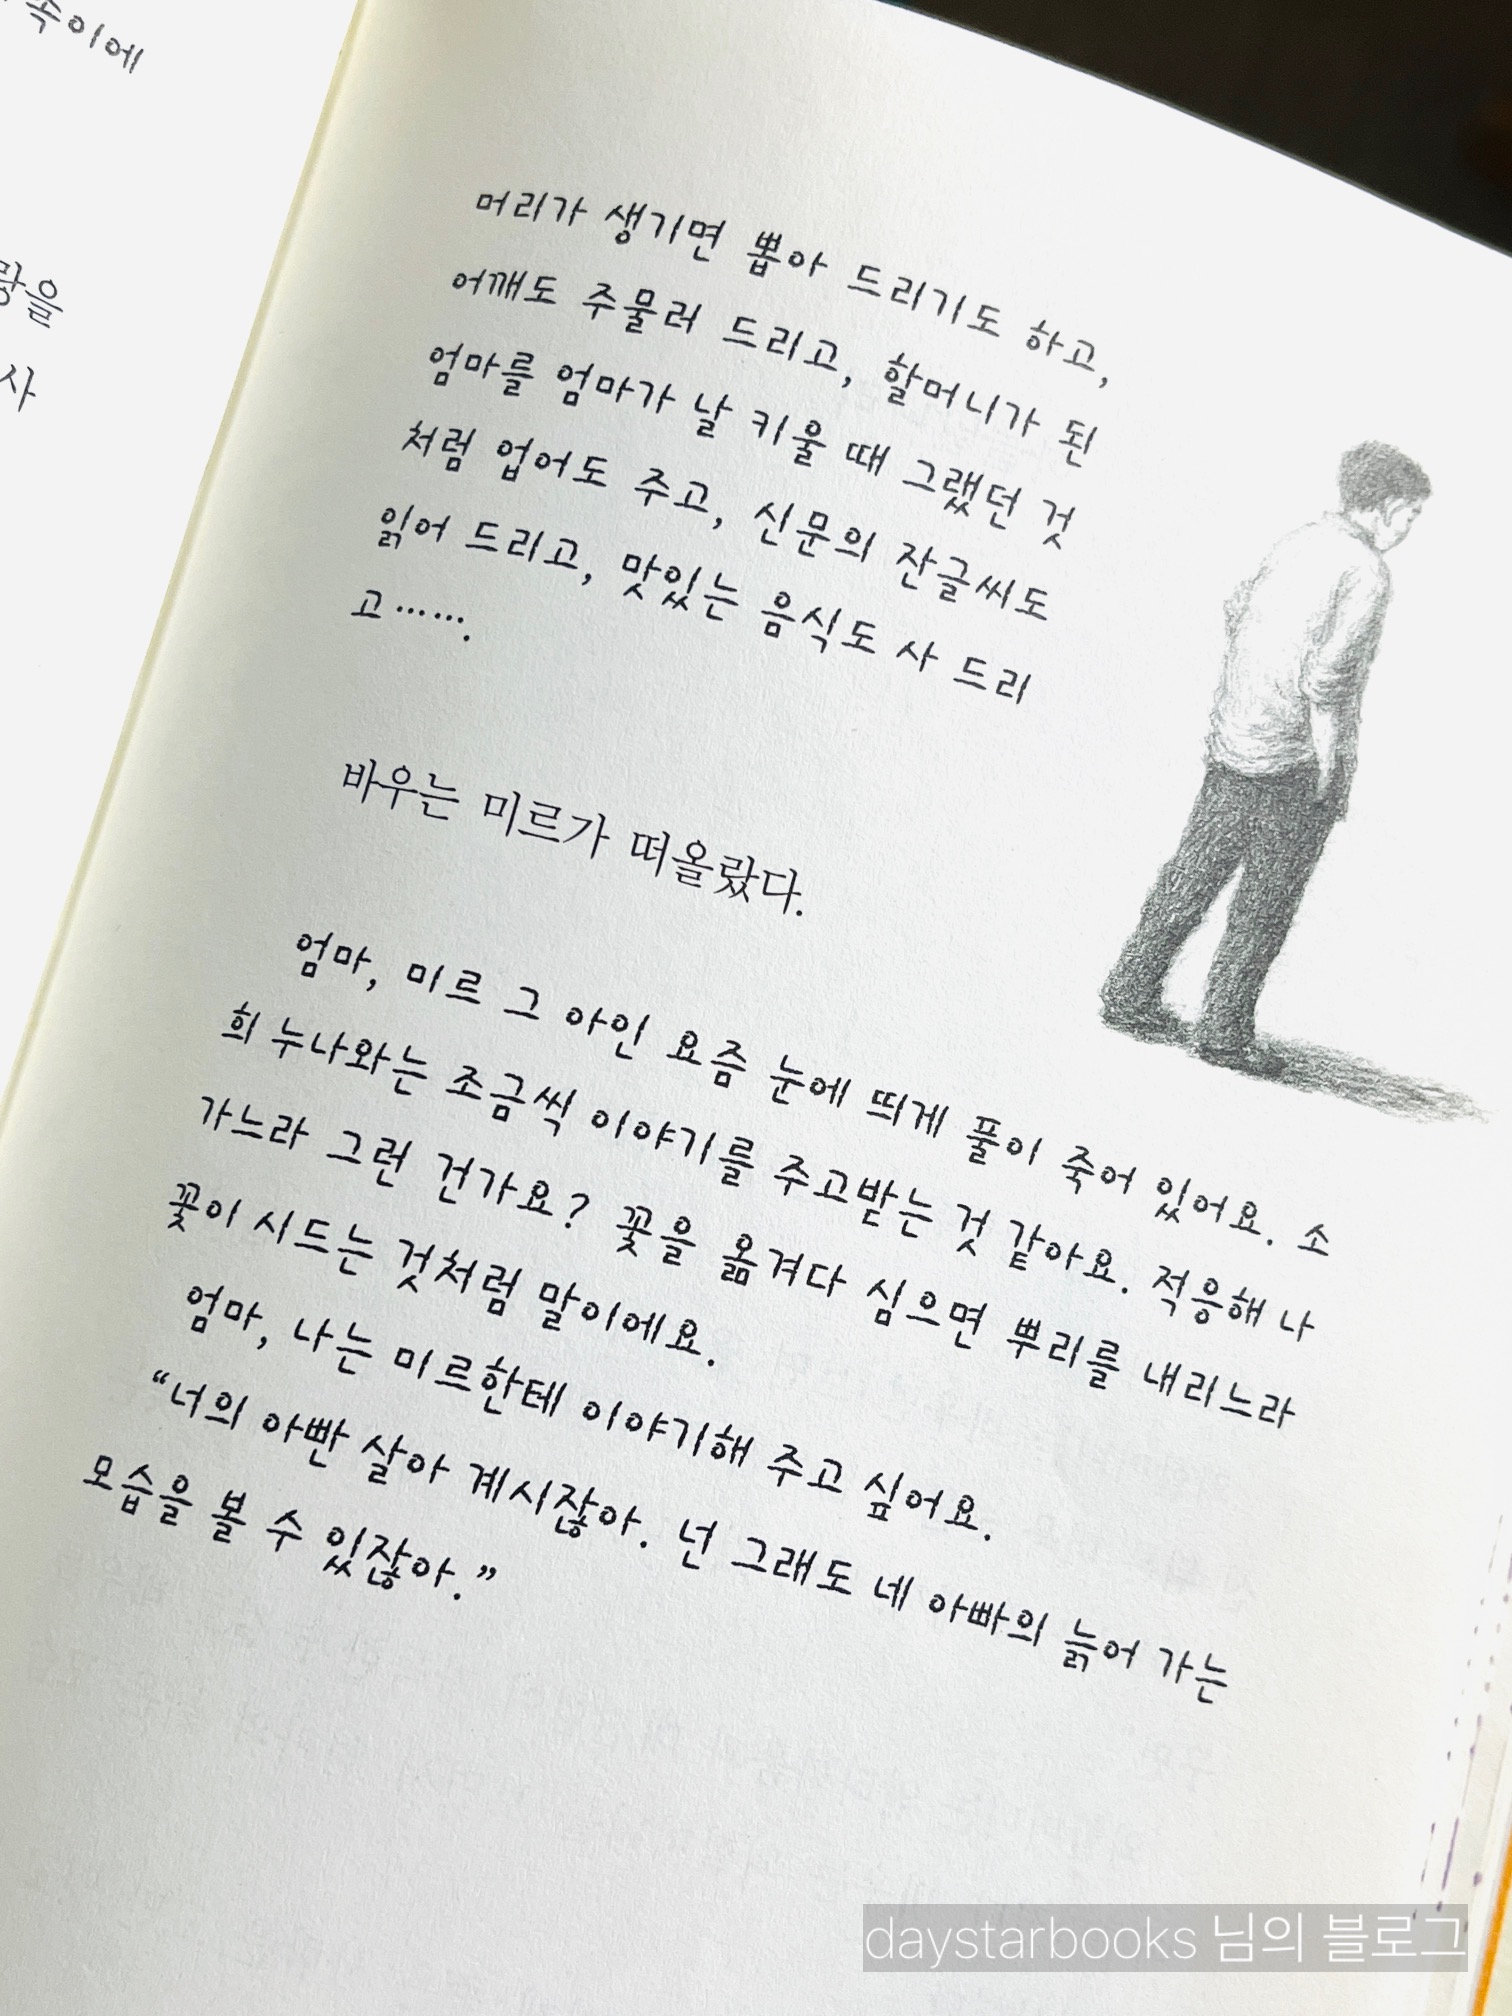 속이에
을
사
머리가 생기면 뽑아 드리기도 하고,
어깨도 주물러 드리고, 할머니가 된
엄마를 엄마가 날 키울 때 그랬던 것
처럼 업어도 주고, 신문의 잔글씨도
읽어 드리고, 맛있는 음식도 사 드리
고…….
바우는 미르가 떠올랐다.
엄마, 미르 그 아인 요즘 눈에 띄게 풀이 죽어 있어요. 소
희 누나와는 조금씩 이야기를 주고받는 것 같아요. 적응해 나
가느라 그런 건가요? 꽃을 옮겨다 심으면 뿌리를 내리느라
꽃이 시드는 것처럼 말이에요.
엄마, 나는 미르한테 이야기해 주고 싶어요.
“너의 아빤 살아 계시잖아. 넌 그래도 네 아빠의 늙어 가는
모습을 볼 수 있잖아.”
daystarbooks 님의 블로그